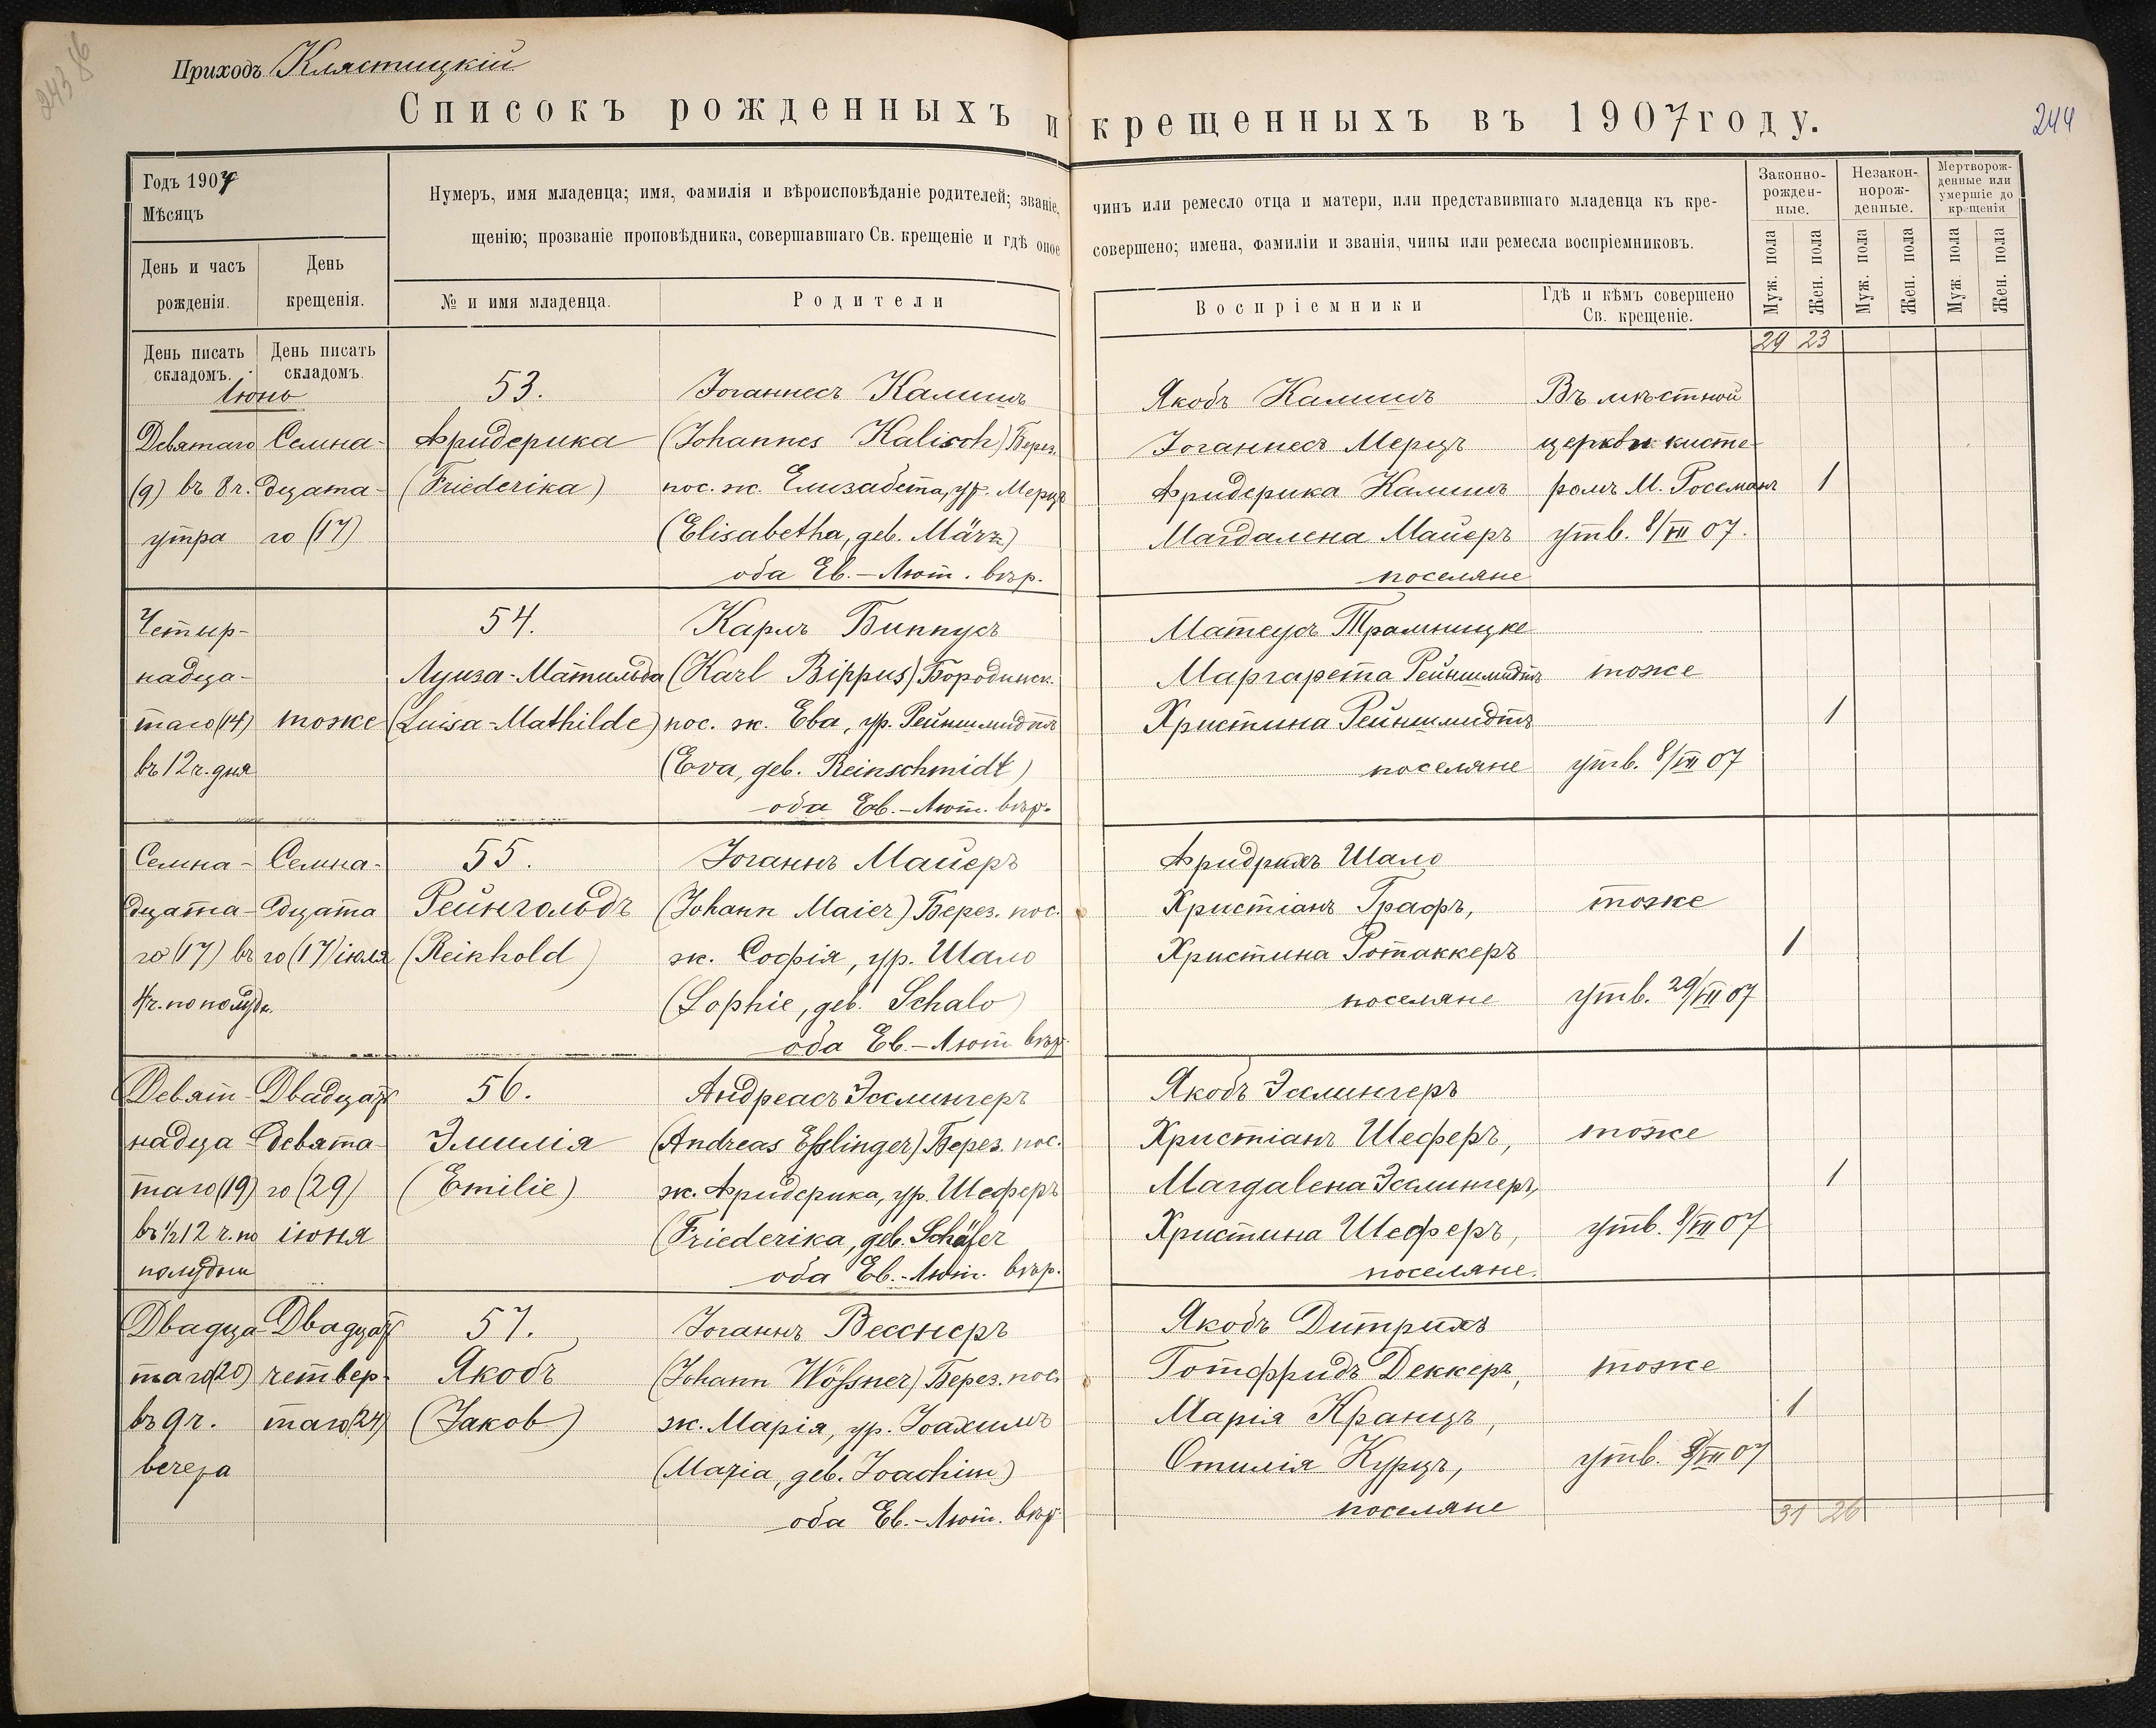 243 об
Приходъ Клястицкій
Списокъ рожденныхъ и крещенныхъ въ 1907 году.
244
Годъ 1907
Мѣсяцъ
День и часъ рожденія.
День крещенія.
Нумеръ, имя младенца; имя, фамилія и вѣроисповѣданіе родителей; званіе, чинъ или ремесло отца и матери, или представившаго младенца къ кре-
щенію; прозваніе проповѣдника, совершавшаго Св. крещеніе и гдѣ оное совершено; имена, фамиліи и званія, чины или ремесла воспріемниковъ.
№ и имя младенца.
Родители
Воспріемники
Гдѣ и кѣмъ совершено Св. крещеніе.
Законно-рожден-ные.
Незакон-норож-денные.
Мертворож-денные или умершіе до крещенія
Муж. пола
Жен. пола
Муж. пола
Жен. пола
Муж. пола
Жен. пола
День писать складомъ.
День писать складомъ.
29 23
Іюнь
Девятаго
(9) въ 8 ч.
утра
Семна-
дцата-
го (17)
53.
Фридерика
(Friederika)
Іоганнесъ Калишъ
(Johannes Kalisch) Берез.
пос. ж. Елизабета, ур. Мерцъ
(Elisabetha, geb. März)
оба Ев.-Лют. вѣр.
Якобъ Калишъ
Іоганнесъ Мерцъ
Фридерика Калишъ
Магдалена Майеръ
поселяне
Въ мѣстной
церкви кисте-
ромъ М. Госсманъ
утв. 8/VII 07.
1
Четыр-
надца-
таго (14)
въ 12 ч. дня
тоже
54.
Луиза-Матильда
(Luisa-Mathilde)
Карлъ Биппусъ
(Karl Bippus) Бородинск.
пос. ж. Ева, ур. Рейншмидтъ
(Eva, geb. Reinschmidt)
оба Ев.-Лют. вѣр.
Матеусъ Трамницке
Маргарета Рейншмидтъ
Христина Рейншмидтъ
поселяне
тоже
утв. 8/VII 07
1
Семна-
дцата-
го (17) въ
4 ч. по полудн.
Семна-
дцата
го (17) іюля
55.
Рейнгольдъ
(Reinhold)
Іоганнъ Майеръ
(Johann Maier) Берез. пос.
ж. Софія, ур. Шало
(Sophie, geb. Schalo)
оба Ев.-Лют. вѣр.
Фридрихъ Шало
Христіанъ Графъ,
Христина Ротаккеръ
поселяне
тоже
утв. 29/VII 07
1
Девят-
надца
таго (19)
въ ½12 ч. по
полудни
Двадцать
девята-
го (29)
іюня
56.
Эмилія
(Emilie)
Андреасъ Эсслингеръ
(Andreas Eßlinger) Берез. пос.
ж. Фридерика, ур. Шеферъ
(Friederika, geb. Schäfer
оба Ев.-Лют. вѣр.
Якобъ Эслингеръ
Христіанъ Шеферъ,
Магдаlена Эсслингеръ,
Христина Шеферъ,
поселяне.
тоже
утв. 8/VII 07
1
Двадца-
таго (20)
въ 9 ч.
вечера
Двадцать
четвер-
таго (24)
57.
Якобъ
(Jakob)
Іоганнъ Весснеръ
(Johann Wößner) Берез. пос.
ж. Марія, ур. Іоахимъ
(Maria, geb. Joachim)
оба Ев.-Лют. вѣр.
Якобъ Дитрихъ
Готфридъ Деккеръ,
Марія Кранцъ,
Отилія Курцъ,
поселяне
тоже
утв. 8/VII 07
1
31 26